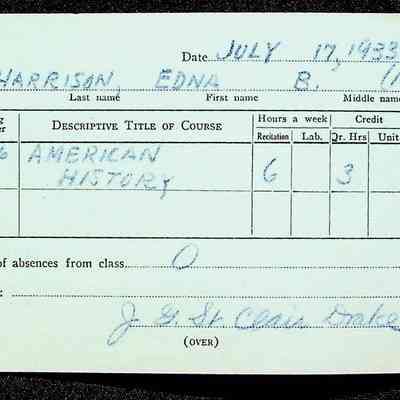 Date JULY 17, 1933
HARRISON, EDNA B.
Last name First name Middle name
DESCRIPTIVE TITLE OF COURSE Hours a week Credit
Recitation Lab. Qr. Hrs Unit
6 AMERICAN HISTORY 6 3
of absences from class 0
J. G. St. Clair Drake
(OVER)